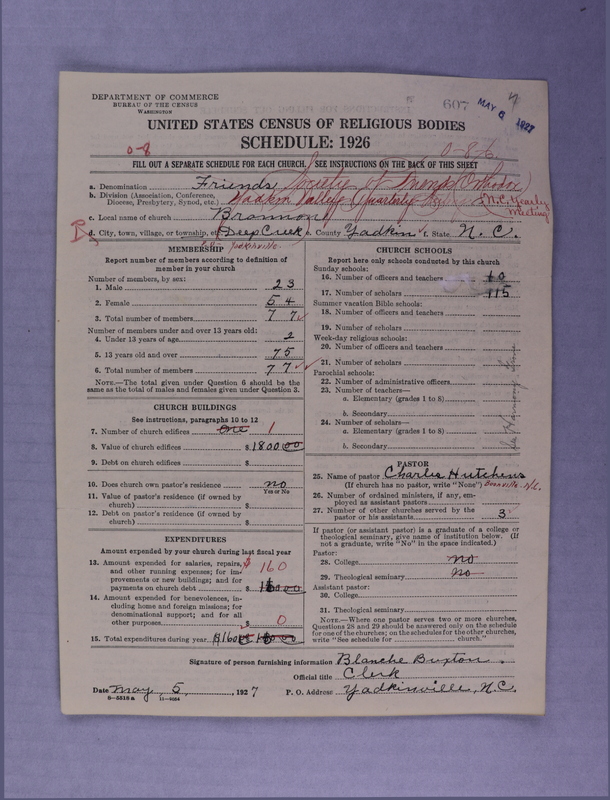 DEPARTMENT OF COMMERCE
BUREAU OF THE CENSUS
WASHINGTON
607 MAY 6 1927
UNITED STATES CENSUS OF RELIGIOUS BODIES
SCHEDULE: 1926
0-8 0-8-6
FILL OUT A SEPARATE SCHEDULE FOR EACH CHURCH. SEE INSTRUCTIONS ON THE BACK OF THIS SHEET
a. Denomination Friends Society of Friends Orthodox
b. Division (Association, Conference, Diocese, Presbytery, Synod, etc.) Yadkin Valley Quarterly N.C. Yearly Meeting
c. Local name of church Brannon
d. City, town, village, or township, etc. Deep Creek e. County Yadkin f. State N. C.
Yadkinville.
MEMBERSHIP
Report number of members according to definition of
member in your church
Number of members, by sex:
1. Male 23
2. Female 54
3. Total number of members 77
Number of members under and over 13 years old:
4. Under 13 years of age 2
5. 13 years old and over 75
6. Total number of members 77
NOTE.—The total given under Question 6 should be the
same as the total of males and females given under Question 3.
CHURCH BUILDINGS
See instructions, paragraphs 10 to 12
7. Number of church edifices One 1
8. Value of church edifices $ 1800.00
9. Debt on church edifices $
10. Does church own pastor's residence no
Yes or No
11. Value of pastor's residence (if owned by
church) $
12. Debt on pastor's residence (if owned by
church) $
EXPENDITURES
Amount expended by your church during last fiscal year
13. Amount expended for salaries, repairs, $160
and other running expenses; for im-
provements or new buildings; and for
payments on church debt $
14. Amount expended for benevolences, in-
cluding home and foreign missions; for
denominational support; and for all
other purposes $ 0
15. Total expenditures during year $160
CHURCH SCHOOLS
Report here only schools conducted by this church
Sunday schools:
16. Number of officers and teachers 10
17. Number of scholars 115
Summer vacation Bible schools:
18. Number of officers and teachers
19. Number of scholars
Week-day religious schools:
20. Number of officers and teachers
21. Number of scholars
Parochial schools:
22. Number of administrative officers
23. Number of teachers—
a. Elementary (grades 1 to 8)
b. Secondary
24. Number of scholars—
a. Elementary (grades 1 to 8)
b. Secondary
PASTOR
25. Name of pastor Charlie Hutchins
(If church has no pastor, write "None") Boonville N.C.
26. Number of ordained ministers, if any, em-
ployed as assistant pastors
27. Number of other churches served by the
pastor or his assistants 3
If pastor (or assistant pastor) is a graduate of a college or
theological seminary, give name of institution below. (If
not a graduate, write "No" in the space indicated.)
Pastor:
28. College no
29. Theological seminary no
Assistant pastor:
30. College
31. Theological seminary
NOTE.—Where one pastor serves two or more churches,
Questions 28 and 29 should be answered only on the schedule
for one of the churches; on the schedules for the other churches,
write "See schedule for church."
Signature of person furnishing information Blanche Buxton.
Official title Clerk
Date May, 5, , 1927 P. O. Address Yadkinville, N.C.